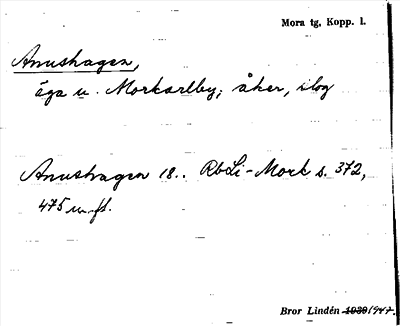 Mora tg, Kopp. l.
Anushagen,
äga u. Morkarlby; åker, ilog
Anushagen 18.. RbLi-Mork s. 372,
475 m.fl.
Bror Lindén 1939 1947.